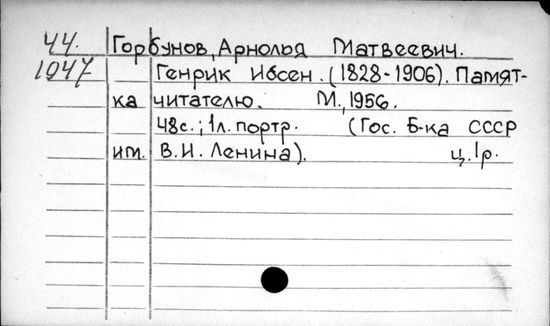 44. Горбунов, Арнольд Матвеевич.
1947 Генрик Ибсен. (1828-1906). Памят-
ка читателю. М., 1956.
48с.; 1л. портр. (Гос. Б-ка СССР
им. В.И. Ленина). ц. 1р.